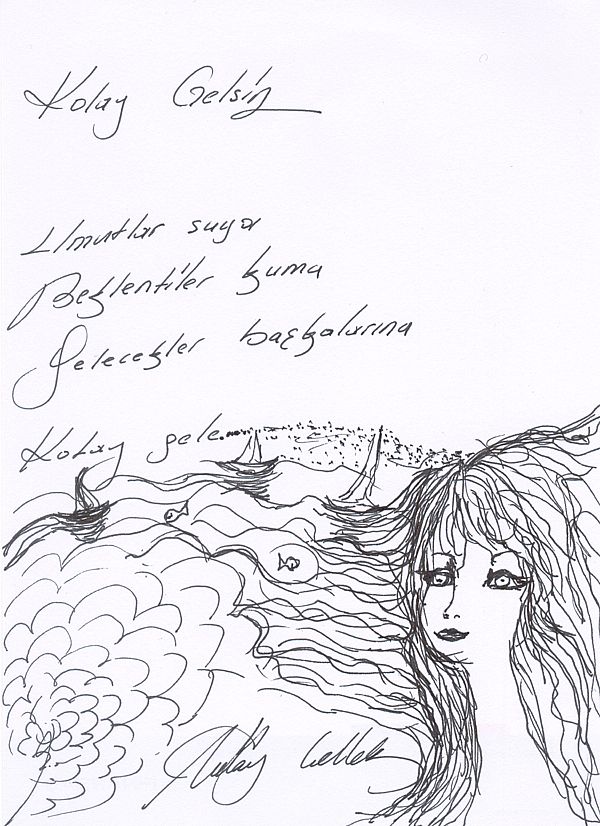 Kolay Gelsin
Umutlar suya
Beklentiler kuma
Gelecekler başkalarına
Kolay gele...